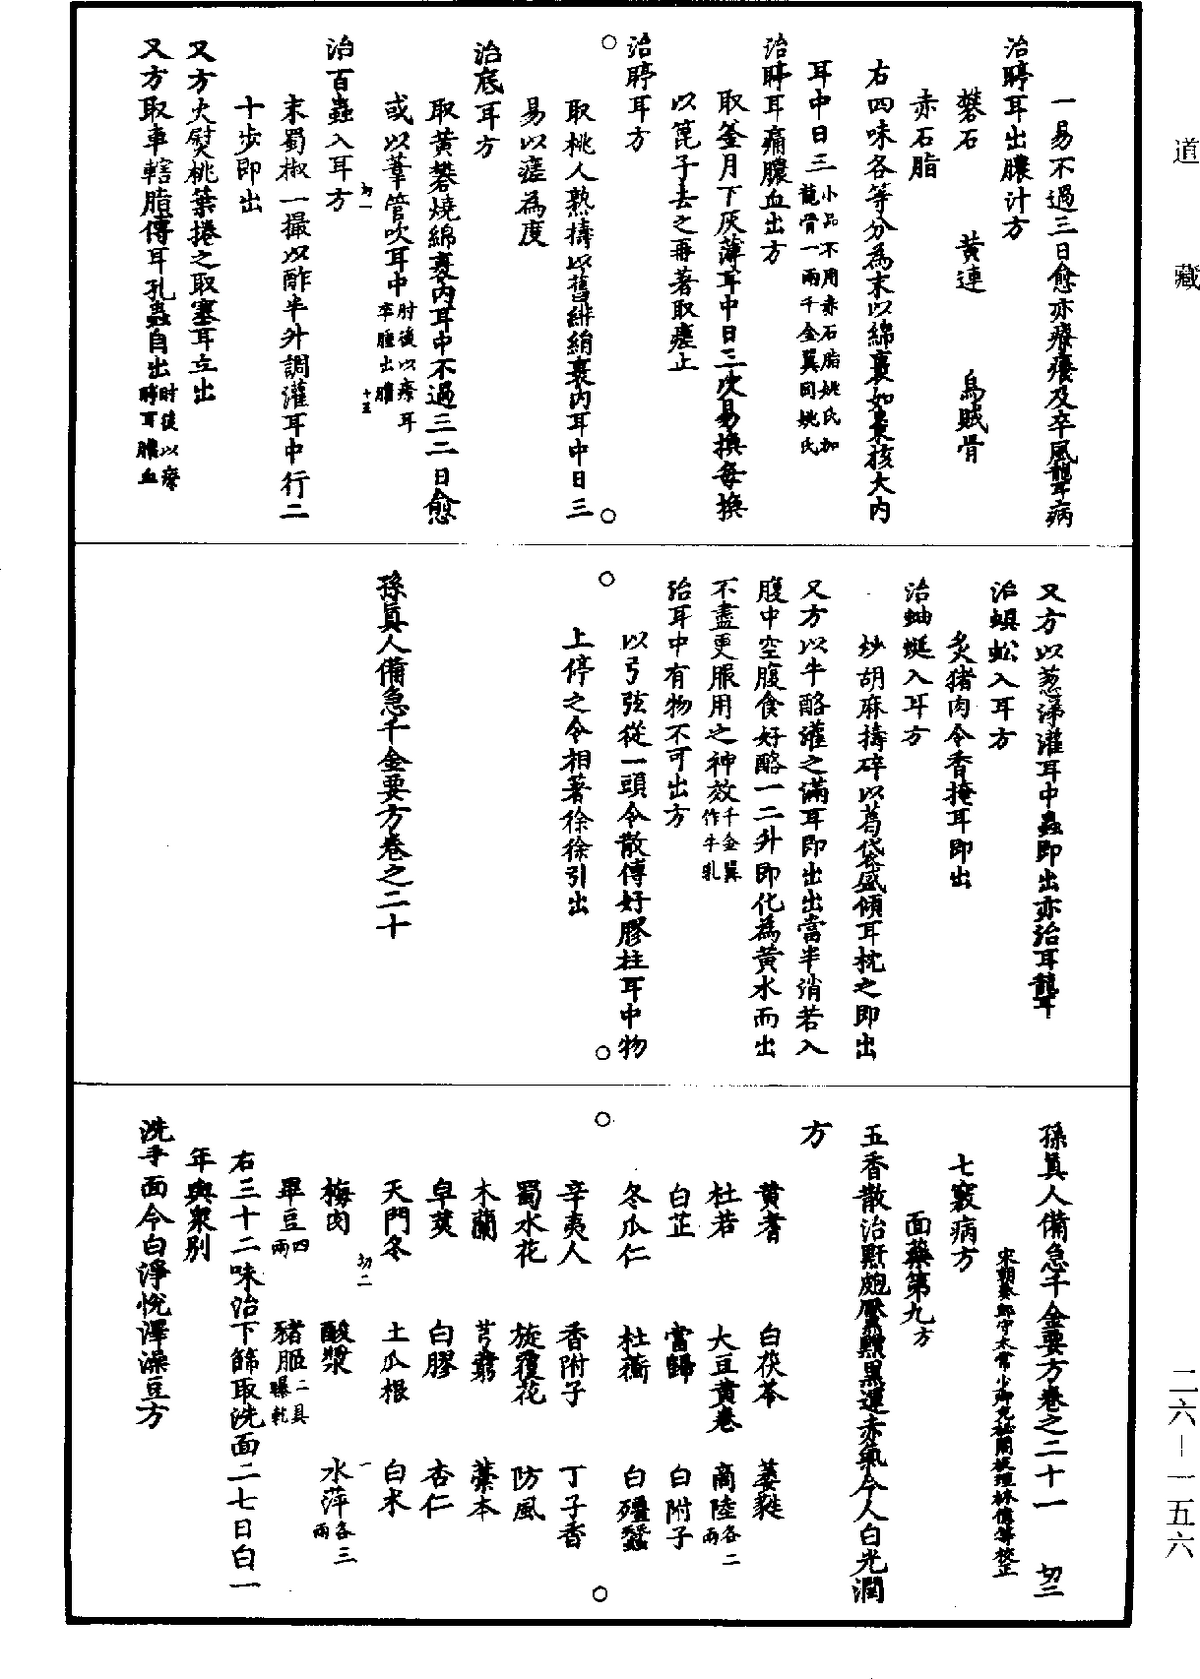 道藏
一易不過三日愈亦療癢及卒風聾病
治聤耳出膿汁方
礬石　黃連　烏賊骨
赤石脂
右四味各等分為末以綿裹如棗核大內
耳中日三小品不用赤石脂姚氏加龍骨一兩千金翼同姚氏
治聤耳痛膿血出方
取釜月下灰薄耳中日三次易換每換
以篦子去之再著取瘥止
治聤耳方
取桃人熟擣以舊緋絹裹內耳中日三
易以瘥為度
治底耳方
取黃礬燒綿裹內耳中不過三二日愈
或以葦管吹耳中肘後以療耳卒腫出膿
十五
切一
治百蟲入耳方
末蜀椒一撮以酢半升調灌耳中行二
十步即出
又方火熨桃葉捲之取塞耳立出
又方取車轄脂傅耳孔蟲自出肘後以療聤耳膿血
又方以葱涕灌耳中蟲即出亦治耳聾
治蜈蚣入耳方
炙猪肉令香掩耳即出
治蚰蜒入耳方
炒胡麻擣碎以葛袋盛傾耳枕之即出
又方以牛酪灌之滿耳即出出當半消若入
腹中空腹食好酪一二升即化為黃水而出
不盡更服用之神效千金翼作牛乳
治耳中有物不可出方
以弓弦從一頭令散傅好膠柱耳中物
上停之令相著徐徐引出
孫真人備急千金要方卷之二十
孫真人備急千金要方卷之二十一　切三
宋朝奉郎守太常少卿充秘閣校理林億等校正
七竅病方
面藥第九方
五香散治䵟皰黡黯黑運赤氣令人白光潤
方
黃耆　白茯苓　萎蕤
杜若　大豆黃卷　商陸各二兩
白芷　當歸　白附子
冬瓜仁　杜蘅　白殭蠶
辛夷人　香附子　丁子香
蜀水花　旋覆花　防風
木蘭　芎藭　藁本
皁莢　白膠　杏仁
天門冬　土瓜根　白朮
切二
一
梅肉　酸漿　水萍各三兩
畢豆四兩　豬胰二具曝乾
右三十二味治下篩取洗面二七日白一
年與眾別
洗手面令白淨悅澤澡豆方
二六—一五六